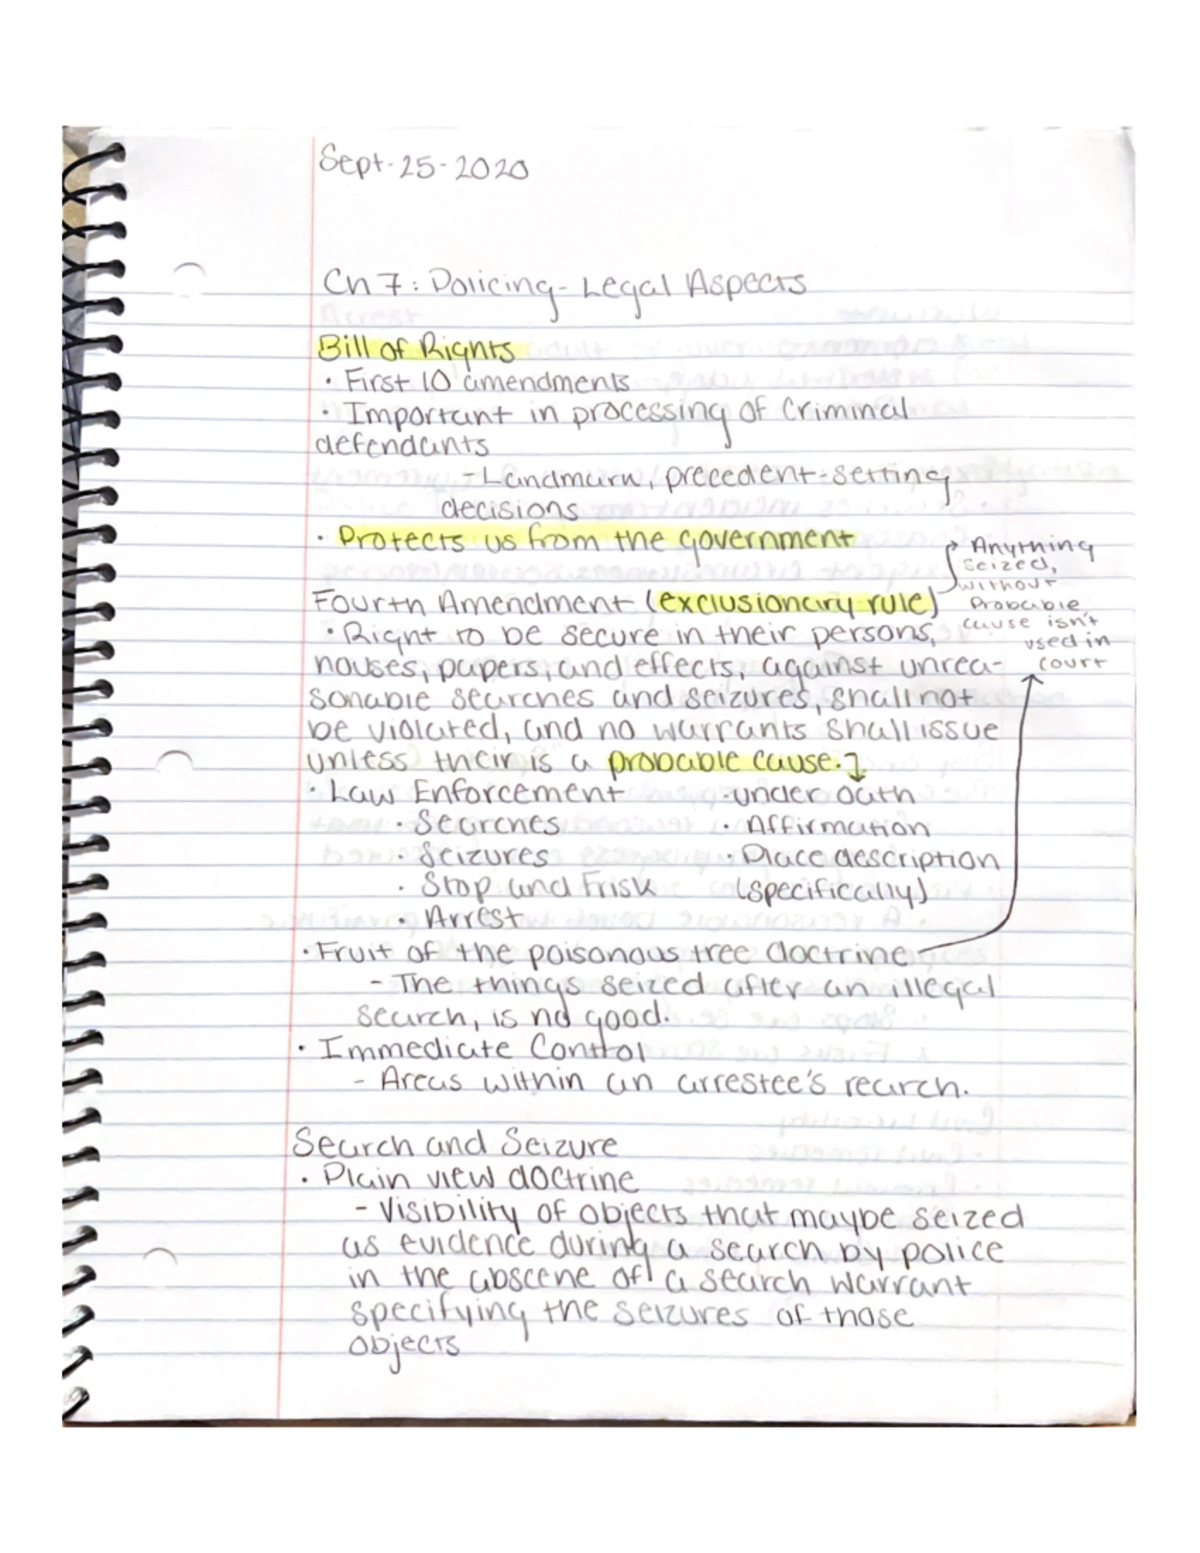 Sept-25-2020
Ch 7: Policing- Legal Aspects
Bill of Rights
• First 10 amendments
• Important in processing of criminal
defendants
- Landmark, precedent-setting
decisions
• Protects us from the government
Fourth Amendment (exclusionary rule)
Anything
seized,
without
Probable
cause isn't
used in
court
• Right to be secure in their persons,
houses, papers, and effects, against unrea-
sonable searches and seizures, shall not
be violated, and no warrants shall issue
unless their is a probable cause.
• Law Enforcement
• Searches
• Seizures
• Stop and Frisk
• Arrest
• under oath
• Affirmation
• Place description
(specifically)
• Fruit of the poisonous tree doctrine
- The things seized after an illegal
search, is no good.
• Immediate Control
- Areas within an arrestee's rearch.
Search and Seizure
• Plain view doctrine
- Visibility of objects that maybe seized
as evidence during a search by police
in the abscene of a search warrant
specifying the seizures of those
objects